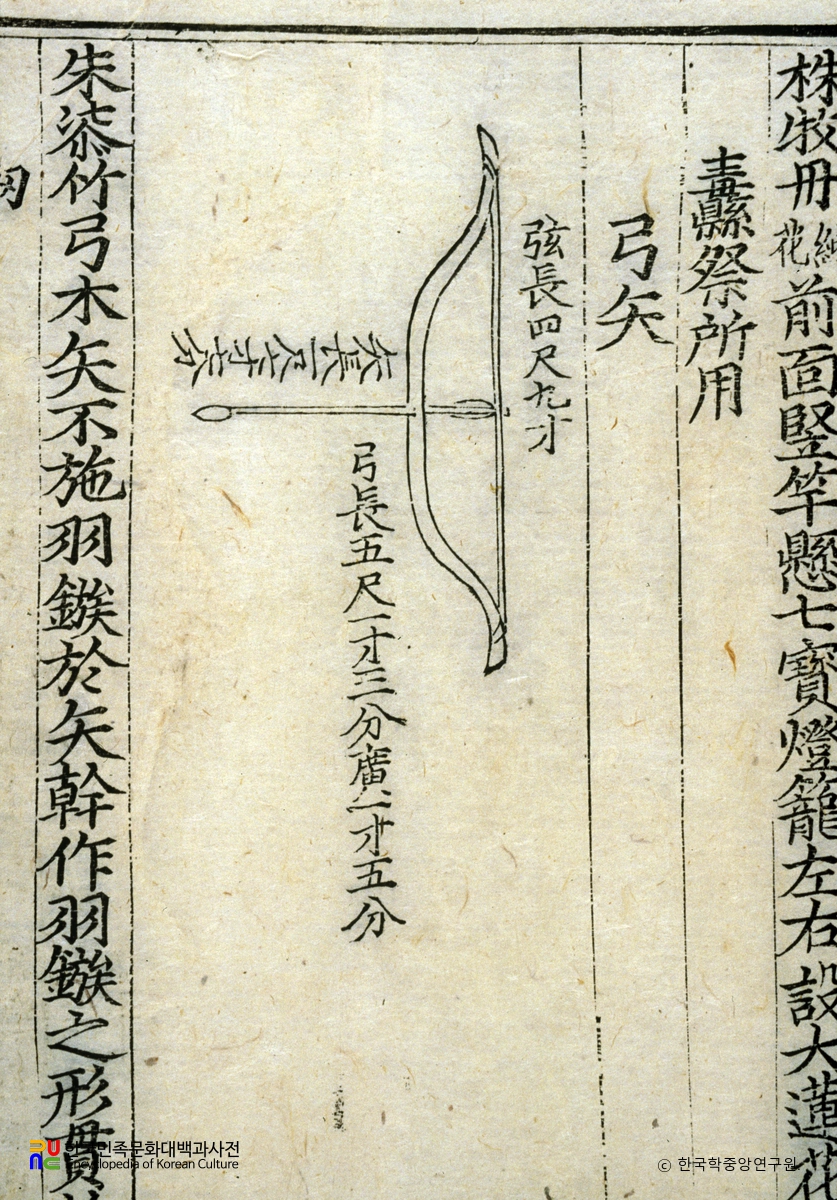 株牧丹紙花前面竪竿懸七寶燈籠左右設大蓮花
纛縣祭所用
弓矢
弦長四尺九寸
弓長五尺一寸三分廣一寸五分
朱漆竹弓木矢不施羽鏃於矢幹作羽鏃之形貫
한국민족문화대백과사전
Encyclopedia of Korean Culture
© 한국학중앙연구원